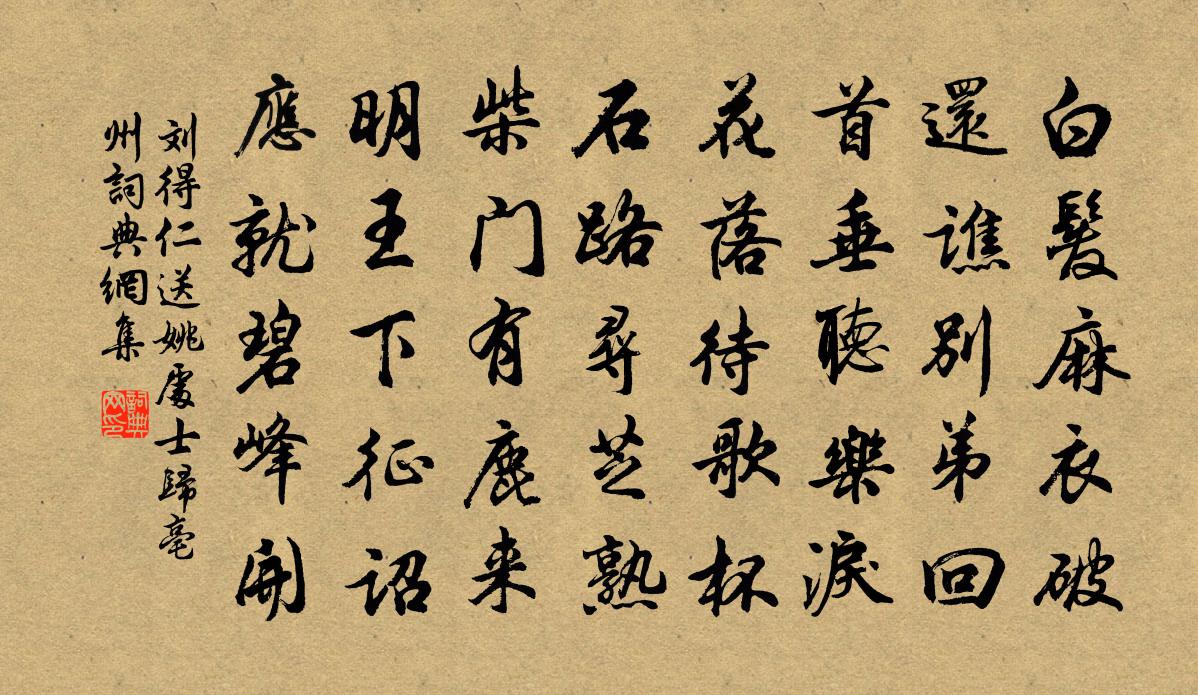 白髮麻衣破
還譙別弟回
首垂聽樂淚
花落待歌杯
石路尋芝熟
柴门有鹿来
明王下征詔
應就碧峰開
刘得仁送姚處士歸亳
州詞典網集
詞典网印